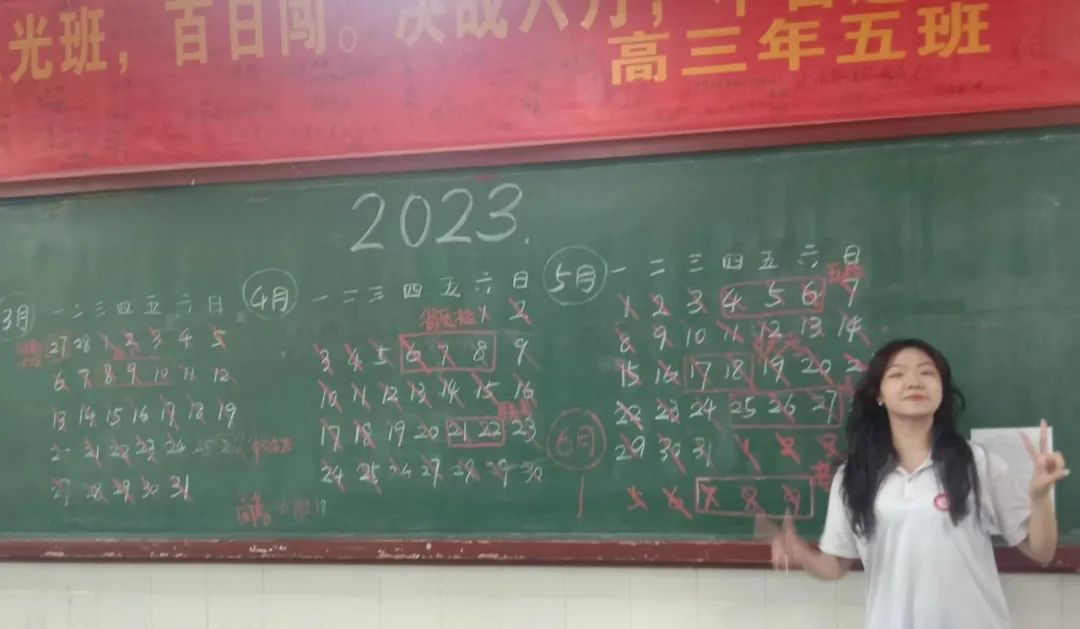 光班，百日闯。决战六月，
高三年五班
2023.
3月 一 二 三 四 五 六 日
27 28 1 2 3 4 5
6 7 8 9 10 11 12
13 14 15 16 17 18 19
21 22 23 24 25
27 28 29 30 31
4月 一 二 三 四 五 六 日
省质检 1 2
3 4 5 6 7 8 9
10 11 12 13 14 15 16
17 18 19 20 21 22 23
24 25 26 27 28 29 30
5月 一 二 三 四 五 六 日
1 2 3 4 5 6 7
8 9 10 11 12 13 14
15 16 17 18 19 20
22 23 24 25 26 27
29 30 31 1
6月
5 6 7 8 9